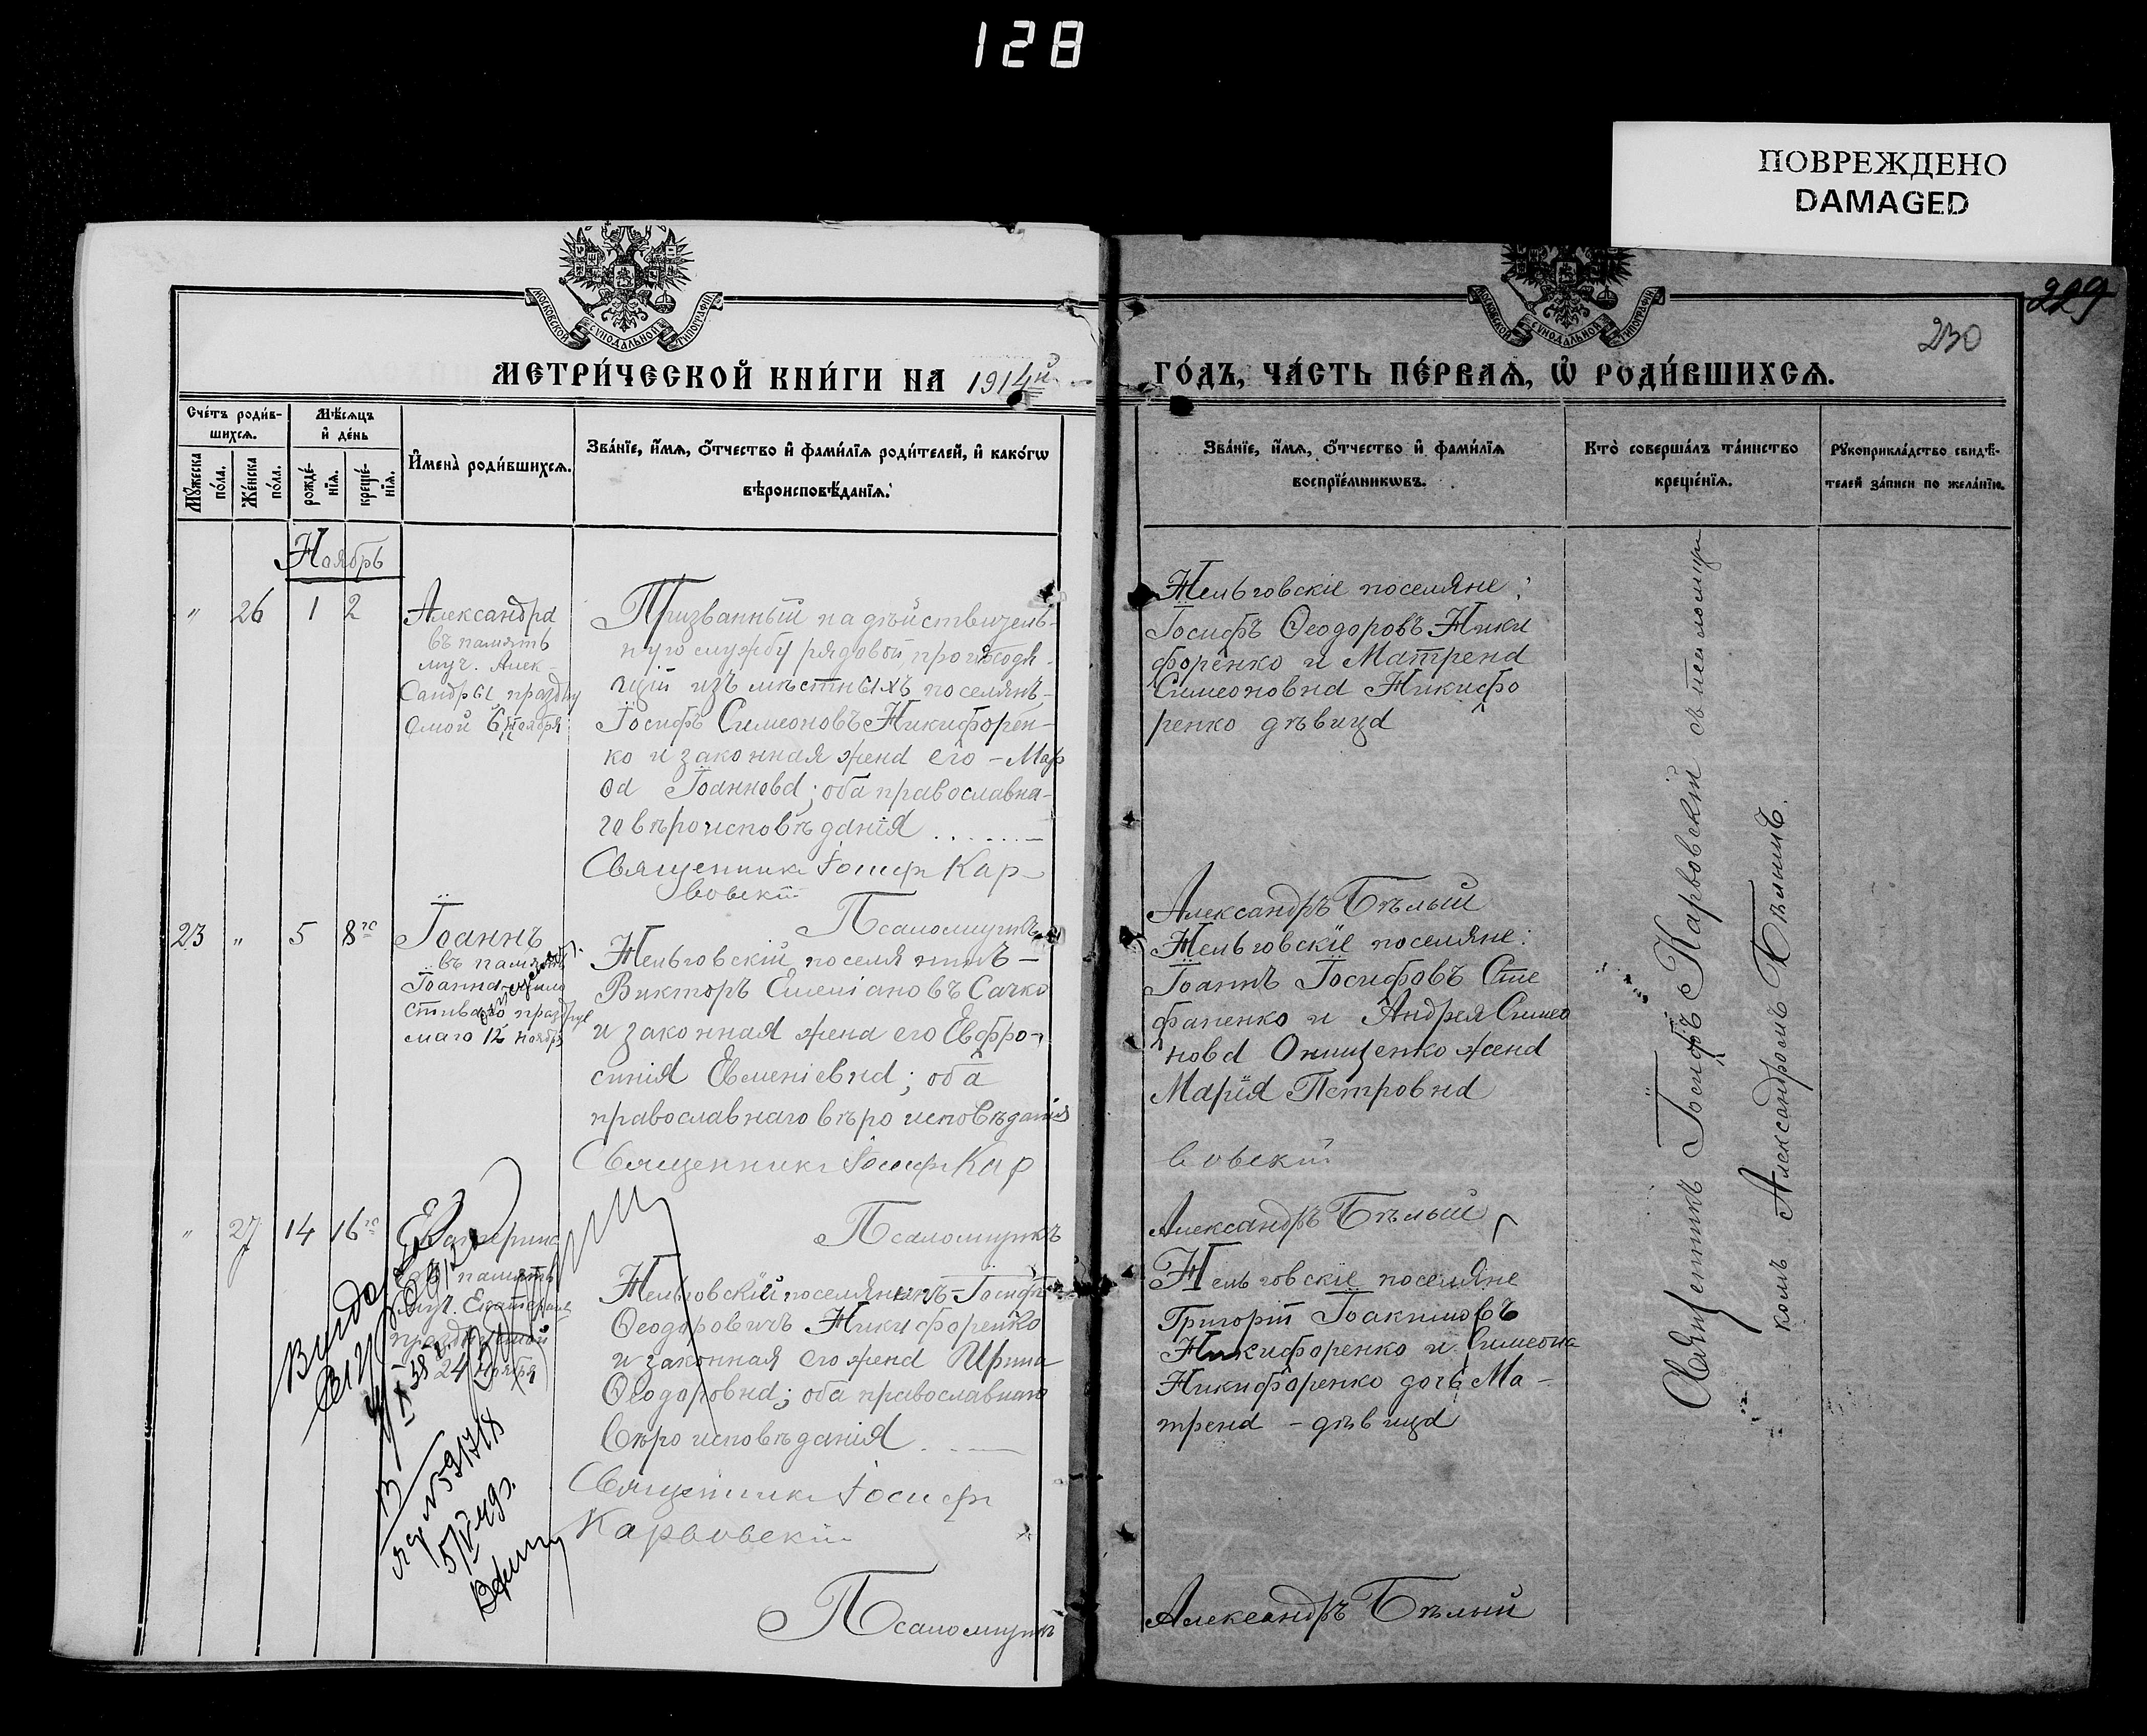 128
ПОВРЕЖДЕНО
DAMAGED
МОСКОВСКОЙ СУНОДАЛЬНОЙ ТИПОГРАФІИ
МОСКОВСКОЙ СУНОДАЛЬНОЙ ТИПОГРАФІИ
229
230
МЕТРИ́ЧЕСКОЙ КНИ́ГИ НА 1914й
ГО́ДЪ, ЧА́СТЬ ПЕ́РВАѦ, Ѡ҆ РОДИ́ВШИХСѦ.
Сче́тъ роди́в-
шихсѧ.
Мѣ́сѧцъ
и҆ де́нь
Мꙋ́жеска
по́ла.
Же́нска
по́ла.
рожде́-
нїѧ.
креще́-
нїѧ.
И҆мена̀ роди́вшихсѧ.
Зва́нїе, и҆́мѧ, ѻ҆́тчество и҆ фами́лїѧ роди́телей, и҆ како́гѡ
вѣроисповѣ́данїѧ.
Зва́нїе, и҆́мѧ, ѻ҆́тчество и҆ фами́лїѧ
воспрїе́мникѡвъ.
Кто̀ соверша́лъ та́инство
креще́нїѧ.
Рꙋкоприкла́дство свидѣ́-
телей за́писи по жела́нїю.
Ноябрь
" 26 1 2
Александра
въ память
муч. Алек-
сандры праздну
емой 6 ноября
Призванный на дѣйствитель-
ную службу рядовой, происходя-
щій изъ мѣстныхъ поселянъ-
Іосифъ Симеоновъ Никифорен-
ко и законная жена его - Мар
ѳа Іоаннова; оба православна-
го вѣроисповѣданія
Священникъ Іосифъ Кар
вовскій
Псаломщикъ
Нельговскіе поселяне:
Іосифъ Ѳеодоровъ Ники
форенко и Матрена
Симеоновна Никифо
ренко дѣвица
Александръ Бѣлый
23 " 5 8го
Іоаннъ
въ память
Іоанна мило
стиваго праздну
маго 12 ноября
Нельговскій поселянинъ -
Викторъ Емеліановъ Сачко
и законная жена его Евфро-
синія Евменіевна; оба
православнаго вѣроисповѣданія
Священникъ Іосифъ Кар
Псаломщикъ
Нельговскіе поселяне:
Іоаннъ Іосифовъ Сте
фаненко и Андрея Симео
нова Онищенко жена
Марія Петровна
вовскій
Александръ Бѣлый
" 27 14 16го
Екатерина
въ память
муч. Екатерины
празднуемой
24 ноября
Нельговскій поселянинъ - Іосифъ
Ѳеодоровичъ Никифоренко
и законная его жена Ирина
Ѳеодоровна; оба православнаго
вѣроисповѣданія
Священникъ Іосифъ
Карвовскій
Псаломщикъ
Нельговскіе поселяне
Григорій Іоакимовъ
Никифоренко и Симеона
Никифоренко дочь Ма-
трена - дѣвица
Александръ Бѣлый
Священникъ Іосифъ Карвовскій съ псаломщи
комъ Александромъ Бѣлымъ.